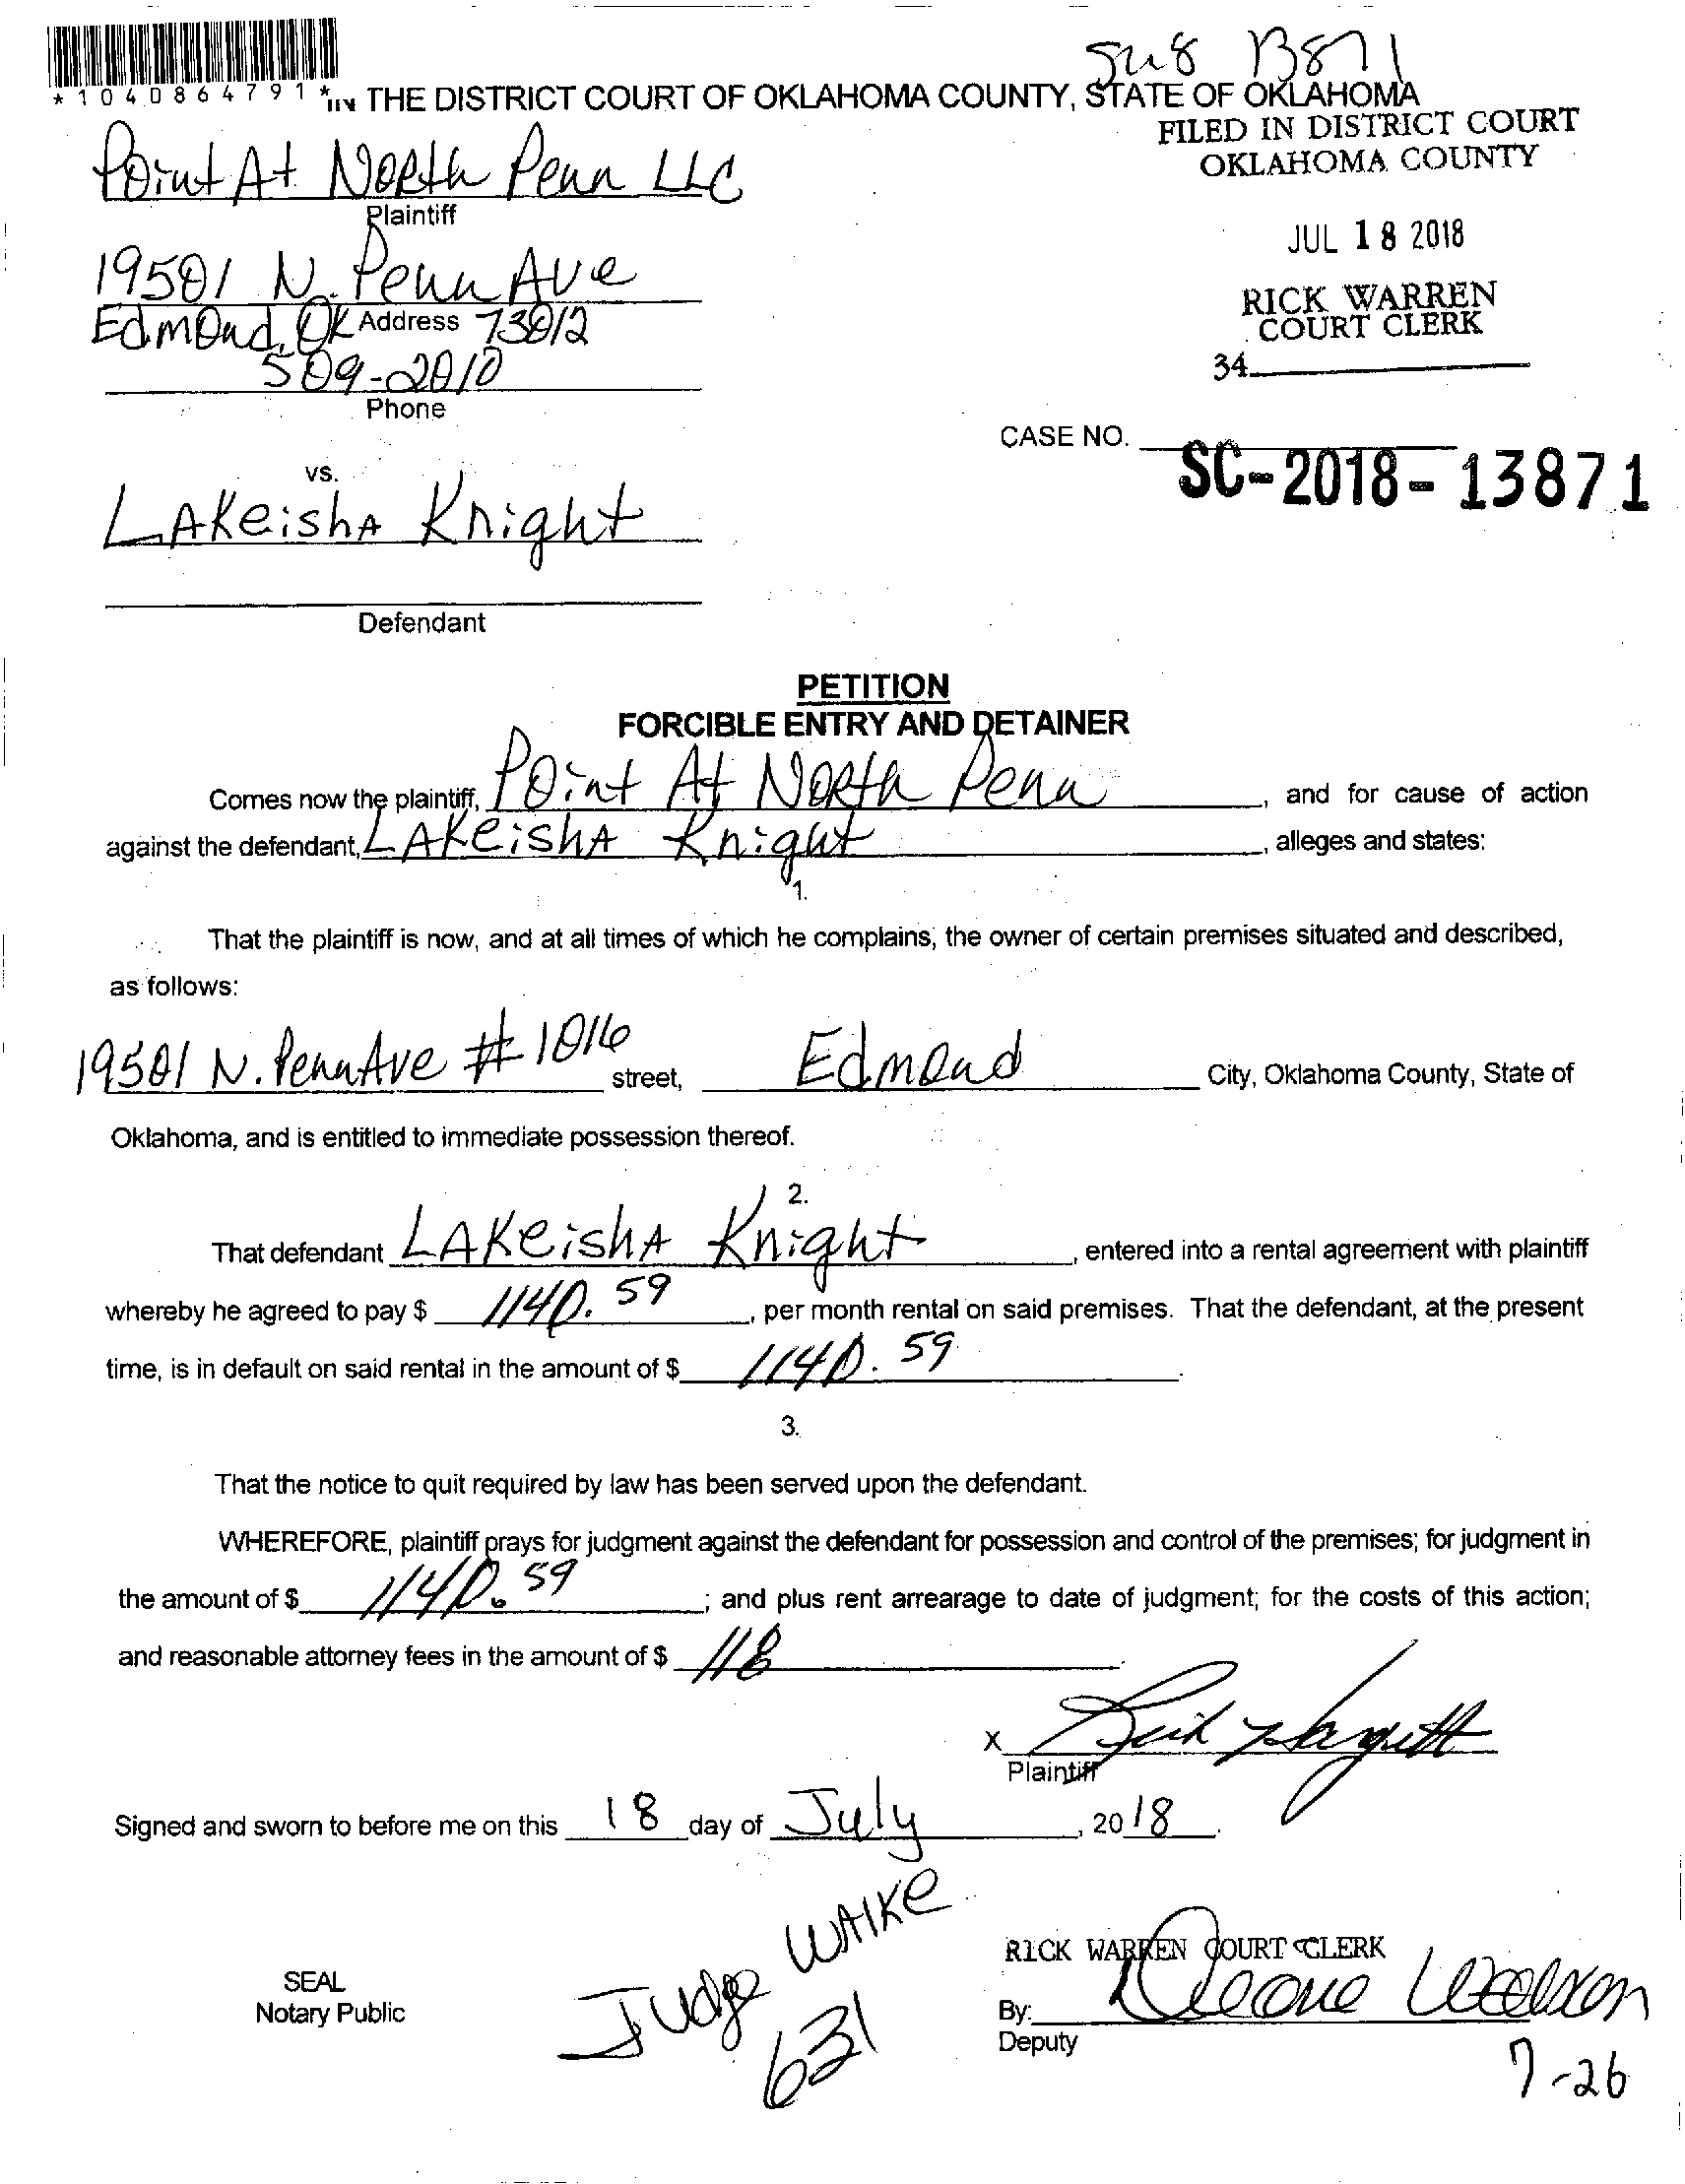 SC18 13871
*1040864791*
IN THE DISTRICT COURT OF OKLAHOMA COUNTY, STATE OF OKLAHOMA
FILED IN DISTRICT COURT
OKLAHOMA COUNTY
Point At North Penn LLC
Plaintiff
JUL 18 2018
19501 N. Penn Ave
RICK WARREN
COURT CLERK
Edmond, OK Address 73012
34
509-2010
Phone
CASE NO. SC-2018-13871
vs.
LAKeishA Knight
Defendant
PETITION
FORCIBLE ENTRY AND DETAINER
Comes now the plaintiff, Point At North Penn, and for cause of action
against the defendant, LAKeishA Knight, alleges and states:
1.
That the plaintiff is now, and at all times of which he complains, the owner of certain premises situated and described,
as follows:
19501 N. Penn Ave # 1016 street, Edmond City, Oklahoma County, State of
Oklahoma, and is entitled to immediate possession thereof.
2.
That defendant LAKeishA Knight, entered into a rental agreement with plaintiff
whereby he agreed to pay $ 1140.59, per month rental on said premises. That the defendant, at the present
time, is in default on said rental in the amount of $ 1140.59.
3.
That the notice to quit required by law has been served upon the defendant.
WHEREFORE, plaintiff prays for judgment against the defendant for possession and control of the premises; for judgment in
the amount of $ 1140.59; and plus rent arrearage to date of judgment; for the costs of this action;
and reasonable attorney fees in the amount of $ 118
X
Plaintiff
Signed and sworn to before me on this 18 day of July, 2018.
Judge WAIKe
631
RICK WARREN COURT CLERK
SEAL
Notary Public
By:
Deputy
7-26